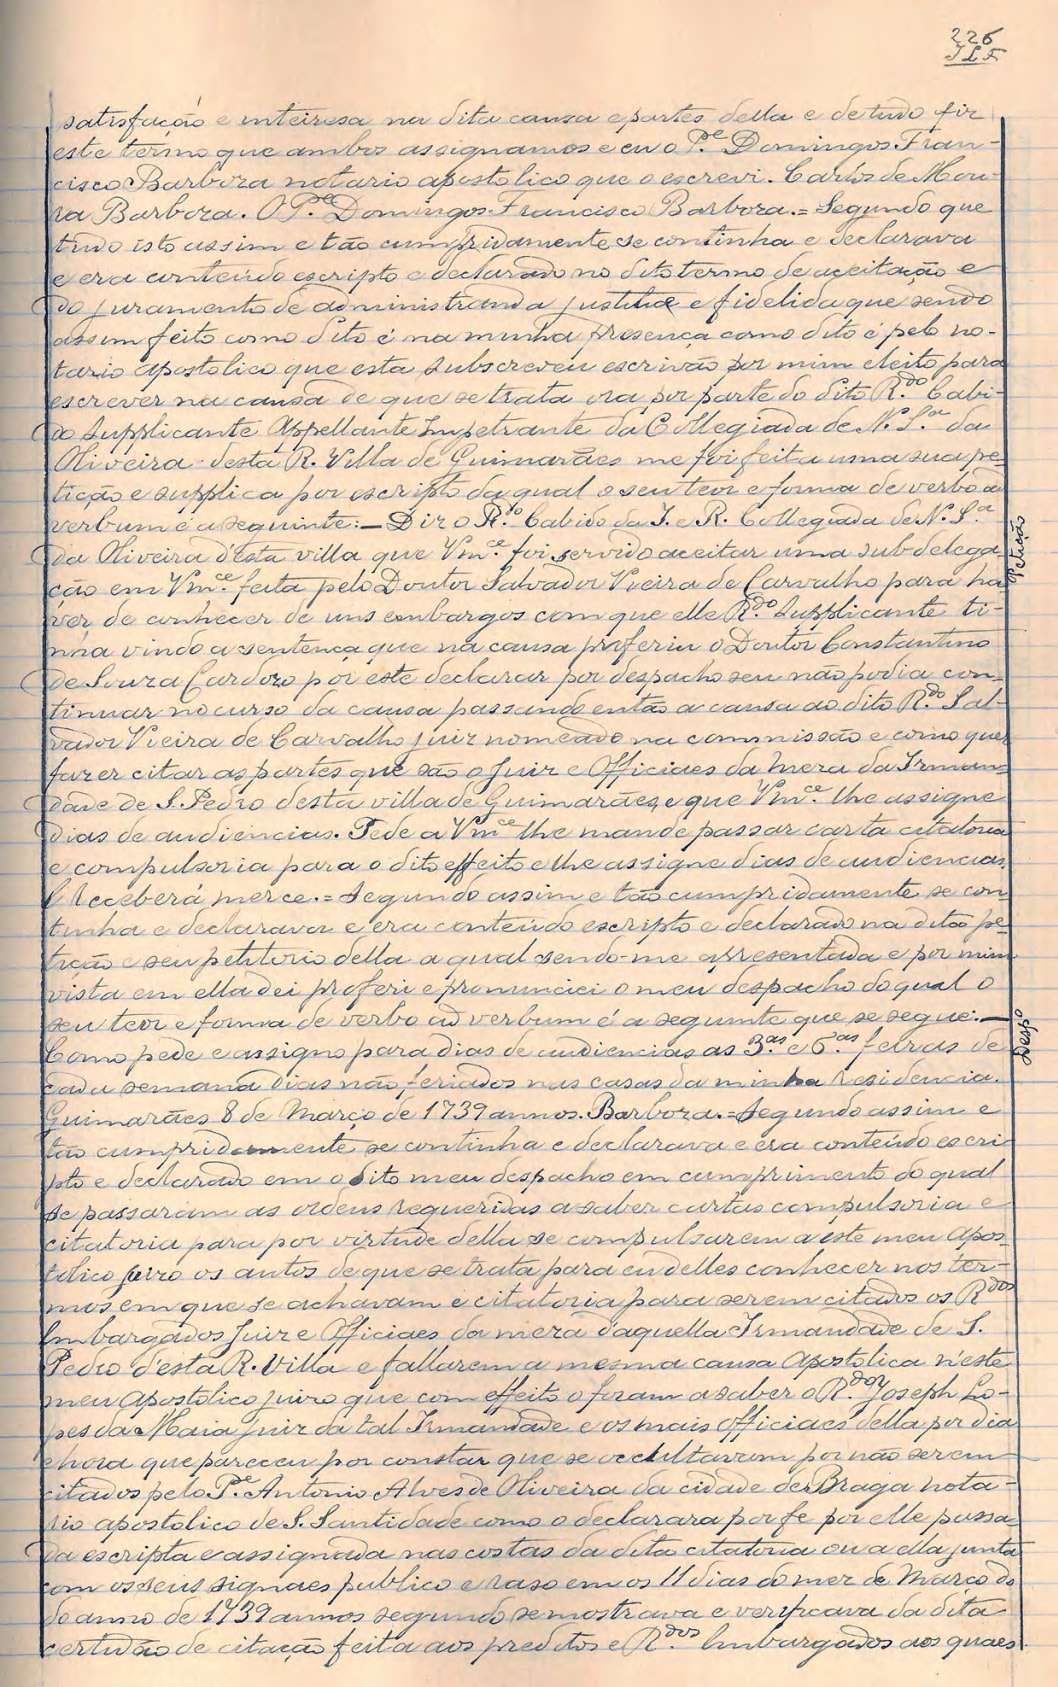 226
JLF
satisfação e inteiresa na dita causa e partes della e de tudo fiz
este termo que ambos assignamos e eu o P.e Domingos Fran-
cisco Barboza notario apostolico que o escrevi. Carlos de Mou-
ra Barboza. O P.e Domingos Francisco Barboza.= Segundo que
tudo isto assim e tão cumpridamente se continha e declarava
e era conteúdo escripto e declarado no dito termo de aceitação e
do juramento de administranda justitiæ e fidelida que sendo
assim feito como dito é na minha presença como dito é pelo no-
tario apostolico que esta subscreveu escrivão por mim eleito para
escrever na causa de que se trata ora por parte do dito R.do Cabi-
do Supplicante Appellante Impetrante da Collegiada de N. S.ra da
Oliveira desta R. Villa de Guimarães me foi feita uma sua pe-
tição e supplica por escripto da qual o seu teor e forma de verbo a
verbum é a seguinte:— Diz o R.do Cabido da I. e R. Collegiada de N. S.a
da Oliveira d'esta villa que Vm.ce foi servido aceitar uma subdelega-
ção em Vm.ce feita pelo Doutor Salvador Vieira de Carvalho para ha-
ver de conhecer de uns embargos com que elle R.do Supplicante ti-
nha vindo a sentença que na causa proferiu o Doutor Constantino
de Souza Cardozo por este declarar por despacho seu não podia con-
tinuar no curso da causa passando então a causa ao dito R.do Sal-
vador Vieira de Carvalho juiz nomeado na commissão e como quer
fazer citar as partes que são o Juiz e Officiaes da Meza da Irman-
dade de S. Pedro desta villa de Guimarães, e que Vm.ce lhe assigne
dias de audiencias. Pede a Vm.ce lhe mande passar carta citatoria
e compulsoria para o dito effeito e lhe assigne dias de audiencias.
E Receberá merce.= Segundo assim e tão cumpridamente se con-
tinha e declarava e era conteúdo escripto e declarado na dita pe-
tição e seu petitorio della a qual sendo-me apresentada e por mim
vista em ella dei proferi e pronunciei o meu despacho do qual o
seu teor e forma de verbo ad verbum é a seguinte que se segue:—
Como pede e assigno para dias de audiencias as 3.as e 6.as feiras de
cada semana dias não feriados nas casas da minha residencia.
Guimarães 8 de Março de 1739 annos. Barboza.= Segundo assim e
tão cumpridamente se continha e declarava e era conteúdo escri-
pto e declarado em o dito meu despacho em cumprimento do qual
se passaram as ordens requeridas a saber cartas compulsoria e
citatoria para por virtude della se compulsarem a este meu apos-
tolico juizo os autos de que se trata para eu delles conhecer nos ter-
mos em que se achavam e citatoria para serem citados os R.dos
Embargados Juiz e Officiaes da meza d'aquella Irmandade de S.
Pedro d'esta R. Villa e fallarem a mesma causa Apostolica n'este
meu apostolico juizo que com effeito o foram a saber o R.dor Joseph Lo-
pes da Maia juiz da tal Irmandade e os mais officiaes della por dia
e hora que pareceu por constar que se occultavam por não serem
citados pelo P.e Antonio Alves de Oliveira da cidade de Braga nota-
rio apostolico de S. Santidade como o declarara por fe por elle passa-
da escripta e assignada nas costas da dita citatoria ou a ella junta
com os seus signaes publico e raso em os 11 dias do mez de Março do
do anno de 1739 annos segundo se mostrava e verificava da dita
certidão de citação feita aos preditos e R.dos Embargados aos quaes
Petição
Desp.o